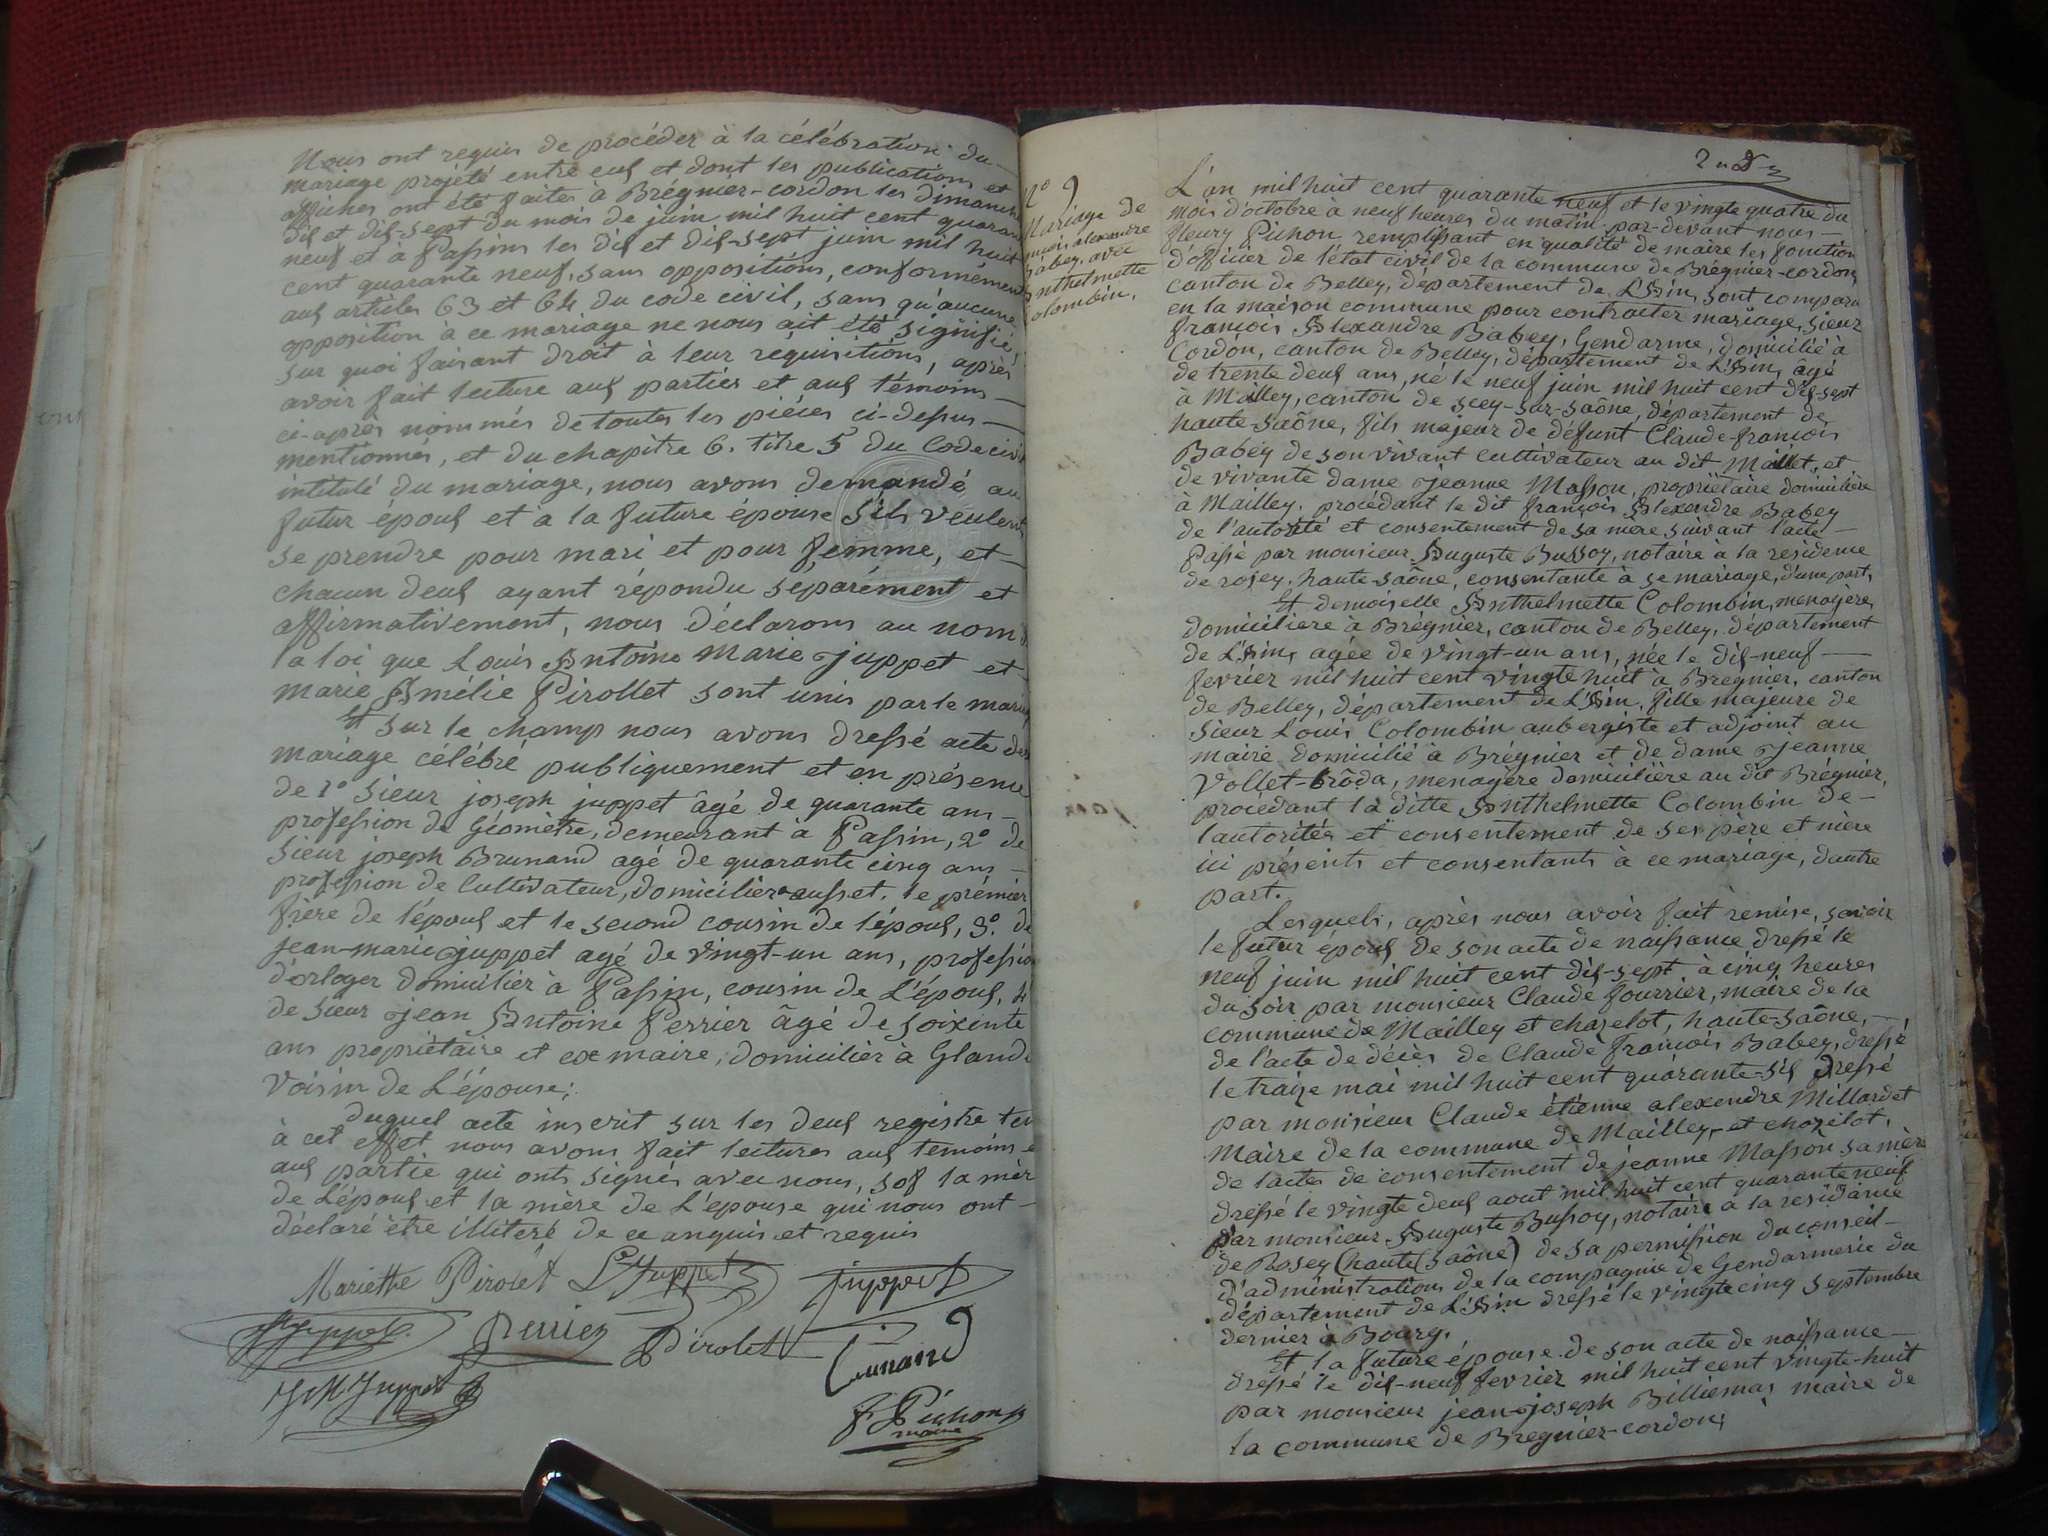 Nous ont requis de procéder à la célébration du
mariage projété entre eus et dont les publications et
affiches ont été faites à Brégnier-cordon les dimanche
dis et dis-sept du mois de juin mil huit cent quaran
neuf et à Passins les dis et dis-sept juin mil huit
cent quarante neuf, sans oppositions, conformément
aus articles 63 et 64 du code civil, sans qu'aucune
opposition à ce mariage ne nous ait été signifié
sur quoi faisant droit à leur réquisitions, après
avoir fait lecture aus parties et aus témoins
ci-après nommés de toutes les pièces ci-dessus
mentionnés, et du chapitre 6. titre 5 du Code civi
intitulé du mariage, nous avons demandé au
futur épous et à la future épouse s'ils veulent
se prendre pour mari et pour femme, et
chacun deus ayant répondu séparément et
affirmativement, nous déclarons au nom d
la loi que Louis Antoine marie juppet et
marie Amélie Pirollet sont unis par le mari
Et sur le champ nous avons dressé acte du
mariage célébré publiquement et en présence
de 1° sieur joseph juppet âgé de quarante ans
profession de Géomètre, demeurant à Passin, 2° de
sieur joseph Brunand agé de quarante cinq ans
profession de Cultivateur, domicilier ausset. le prémier
frère de l'épous et le second cousin de l'épous, 3°. de
jean-marie juppet agé de vingt-un ans, professio
d'orloger domicilier à Passin, cousin de L'épous, 4
de sieur jean Antoine Perrier âgé de soixinte
ans propriètaire et ex maire, domicilier à Gland
voisin de L'épouse;
duquel acte inscrit sur les deus registre ten
à cet effet nous avons fait lectures aus témoins e
aus partie qui ont signés avec nous, sof la mèr
de L'épous et la mère de L'épouse qui nous ont
déclaré être illiteré de ce anquis et requis
Mariette Pirolet L Juppet juppet
Juppet Perrier Pirolet Brunand
J M Juppet
F Pichon
maire
2 nd
N° 9
Mariage de
ançois alexandre
Babey, avec
Anthelmette
Colombin.
L'an mil huit cent quarante neuf et le vingte quatre du
mois d'octobre à neuf heures du matin par-devant nous
fleury Pichon remplissant en qualité de maire les fonction
d'officier de l'état civil de la commune de Brégnier-cordon,
canton de Belley, département de L'Ain, sont comparu
en la maison commune pour contracter mariage, sieur
françois Alexandre Babey, Gendarme, domicilié à
Cordon, canton de Belley, département de L'Ain, âgé
de trente deus ans, né le neuf juin mil huit cent dis-sept
à Mailley, canton de scey-sur-saône, département de
haute-saône, fils majeur de défunt Claude-françois
Babey de son vivant cultivateur au dit Maillet, et
de vivante dame jeanne Masson, propriètaire domicilière
à Mailley. procédant le dit françois Alexandre Babey
de l'autorité et consentement de sa mère suivant l'acte
Passé par monsieur Auguste Bussoy, notaire à la residence
de rosey, haute-saône, consentante à se mariage, d'une part,
Et demoiselle Anthelmette Colombin, menagère,
domicilière à Brégnier, canton de Belley, département
de L'Ain, agée de vingt-un ans, née le dis-neuf
fevrier mil huit cent vingte huit à Bregnier, canton
de Belley, département de L'Ain, fille majeure de
Sieur Louis Colombin aubergiste et adjoint au
maire domicilié à Brégnier et de dame jeanne
Vollet-brôda, menagère domicilière au dit Brégnier,
procédant la ditte Anthelmette Colombin de
l'autorités et consentement de ses père et mère
ici présents et consentants à ce mariage, dautre
part.
Lesquels, après nous avoir fait remise, savoir
le futur épous de son acte de naissance dressé le
neuf juin mil huit cent dis-sept à cinq heures
du soir par monsieur Claude fourrier, maire de la
commune de Mailley et chazelot, haute-saône,
de l'acte de décès de Claude françois Babey, dressé
le traize mai mil huit cent quarante-sis dressé
par monsieur Claude étienne alexendre Millardet
Maire de la commune de Mailley et chazelot,
de l'actes de consentement de jeanne Masson sa mère
dressé le vingte deus aout mil huit cent quarante neuf
par monsieur Auguste Bussoy, notaire à la residance
de Rosey (haute saône) de sa permission du conseil
d'administration, de la compagnie de Gendarmerie du
département de L'Ain dressé le vingte cinq septembre
dernier à Bourg.
Et la future épouse de son acte de naissance
dressé le dis-neuf fevrier mil huit cent vingte-huit
par monsieur jean-joseph Billiemas maire de
la commune de Bregnier-cordon;